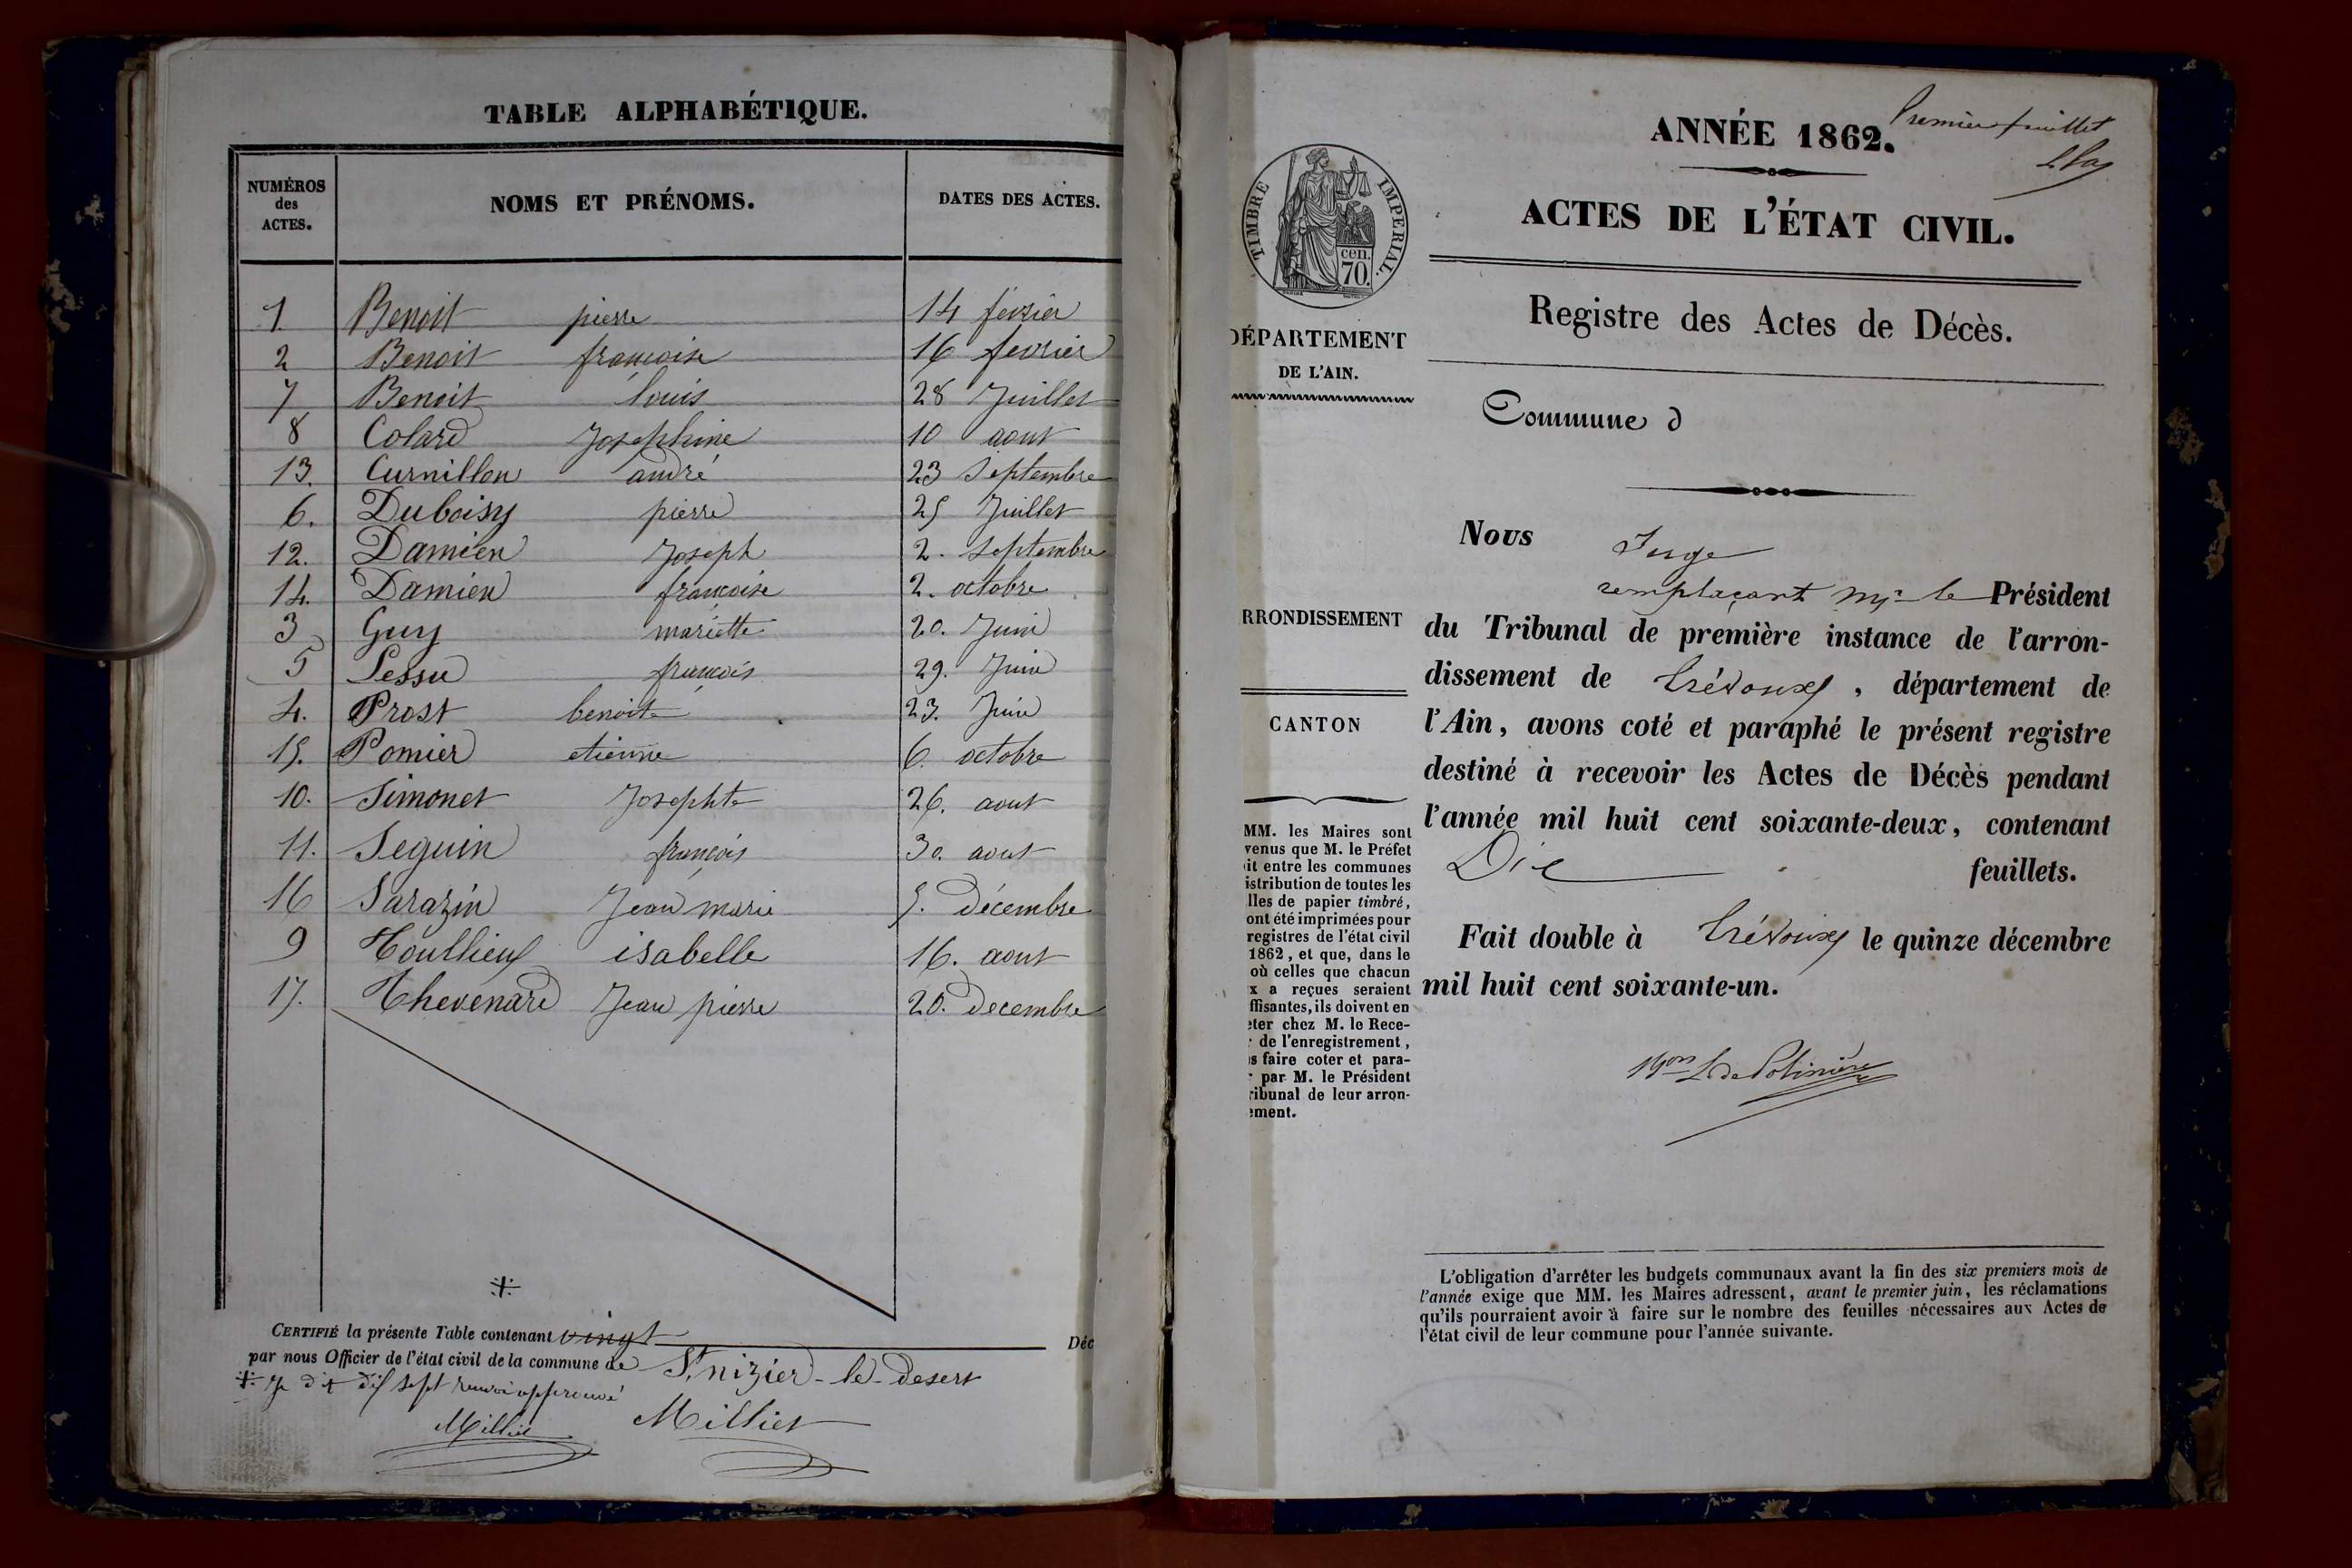 TABLE ALPHABÉTIQUE.
NUMÉROS des ACTES. NOMS ET PRÉNOMS. DATES DES ACTES.
1. Benoit pierre 14 février
2 Benoit francoise 16 fevrier
7 Benoit louis 28 Juillet
8 Colard Josephine 10 aout
13. Curnillon andré 23 Septembre
6. Duboisy pierre 25 Juillet
12. Damien Joseph 2. Septembre
14. Damien francoise 2. octobre
3 Guy mariette 20. Juin
5 Pessu francois 29. Juin
4. Prost benoite 23. Juin
15. Pomier etienne 6. octobre
10. Simonet Josephte 26. aout
11. Seguin françois 30. aout
16 Sarazin Jean marie 5. Décembre
9 Toullieux isabelle 16. aout
17. Thevenard Jean pierre 20. Decembre
CERTIFIÉ la présente Table contenant vingt Déc
par nous Officier de l'état civil de la commune de St nizier-le-desert
Je dit dix sept renvoi approuvé
Milliet Milliet
ANNÉE 1862. Premier feuillet
ACTES DE L'ÉTAT CIVIL.
TIMBRE IMPERIAL.
cen.
70.
Registre des Actes de Décès.
DÉPARTEMENT
DE L'AIN.
Commune d
Nous Juge
remplaçant Mr le Président
du Tribunal de première instance de l'arron-
dissement de Trévoux, département de
l'Ain, avons coté et paraphé le présent registre
destiné à recevoir les Actes de Décès pendant
l'année mil huit cent soixante-deux, contenant
Dix feuillets.
Fait double à Trévoux le quinze décembre
mil huit cent soixante-un.
de Polinière
RRONDISSEMENT
CANTON
MM. les Maires sont
venus que M. le Préfet
it entre les communes
istribution de toutes les
lles de papier timbré,
ont été imprimées pour
registres de l'état civil
1862, et que, dans le
où celles que chacun
x a reçues seraient
ffisantes, ils doivent en
eter chez M. le Rece-
r de l'enregistrement,
s faire coter et para-
r par M. le Président
ribunal de leur arron-
ement.
L'obligation d'arrêter les budgets communaux avant la fin des six premiers mois de
l'année exige que MM. les Maires adressent, avant le premier juin, les réclamations
qu'ils pourraient avoir à faire sur le nombre des feuilles nécessaires aux Actes de
l'état civil de leur commune pour l'année suivante.